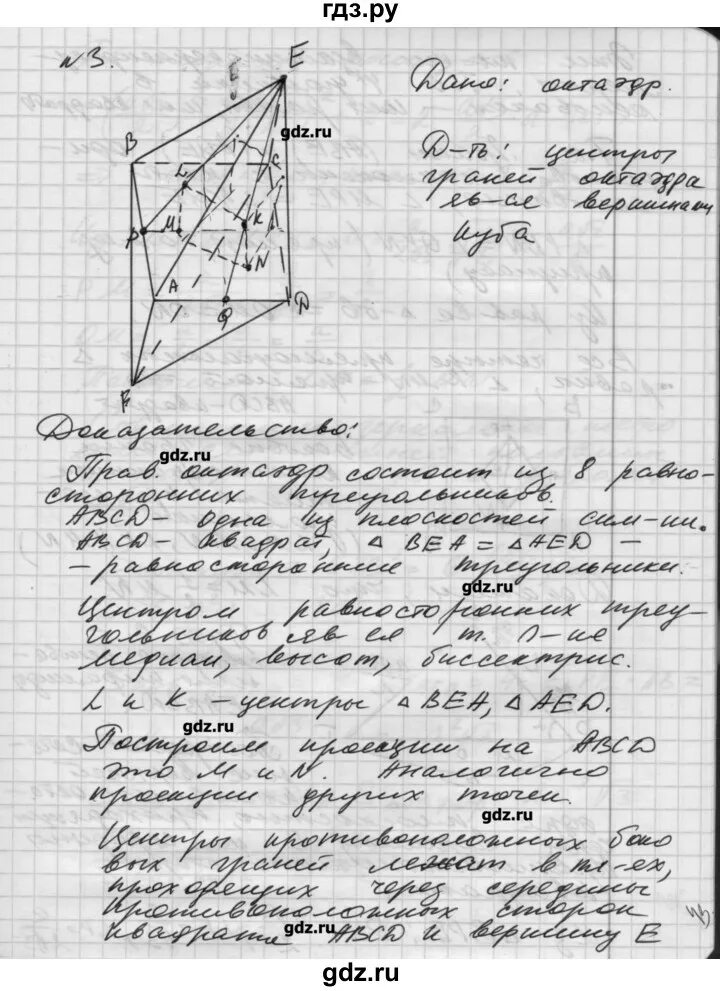 гдз.ру
№3.
E
Дано: октаэдр.
gdz.ru
B
C
Д-ть: центры
граней октаэдра
яв-ся вершинами
куба
L
P
M
K
N
A
Q
D
F
Доказательство:
gdz.ru
Прав. октаэдр состоит из 8 равно-
сторонних треугольников.
ABCD – одна из плоскостей сим-ии.
ABCD – квадрат, △ BEA = △ AED –
– равносторонние треугольники.
gdz.ru
Центром равносторонних треу-
гольников яв ся т. П-ие
медиан, высот, биссектрис.
L и K – центры △ BEA, △ AED.
gdz.ru
Построим проекции на ABCD
это M и N. Аналогично
проекции других точек.
gdz.ru
Центры противоположных боко
вых граней лежат в пл-ях,
проходящих через середины
gdz.ru
противоположных сторон
квадрата ABCD и вершину E
gdz.ru